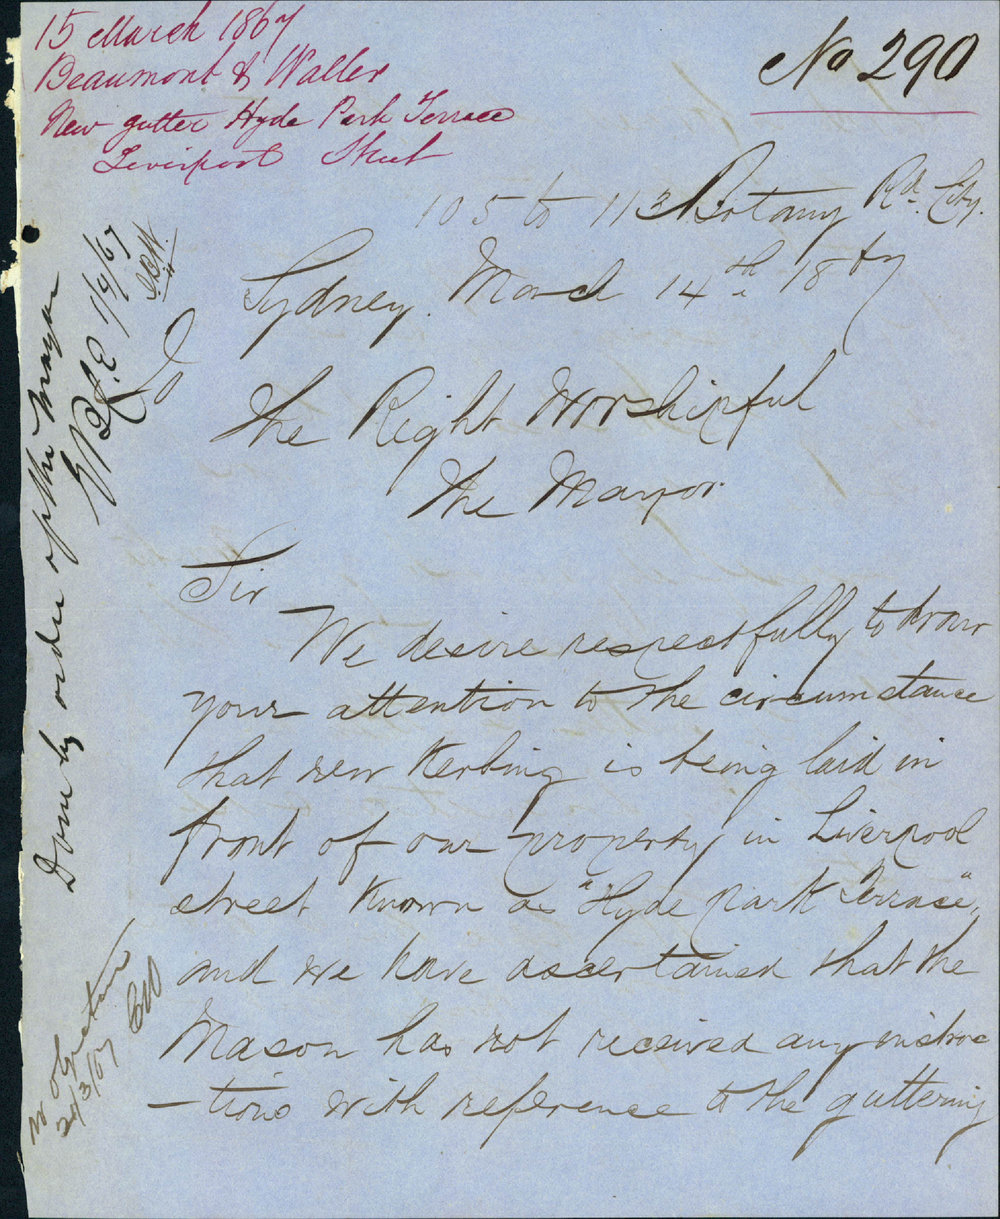 15 March 1867
Beaumont & Waller
New gutter Hyde Park Terrace
Liverpool Street
No 290
105 to 113 Botany Rd. City.
Sydney. March 14th 1867
To
The Right Worshipful
The Mayor.
Sir
We desire respectfully to draw
your attention to the circumstance
that new Kerbing is being laid in
front of our property in Liverpool
street known as "Hyde Park Terrace",
and we have ascertained that the
Mason has not received any instruc
-tions with reference to the guttering
Done by order of the Mayor
1/4/67
no objection
20/3/67